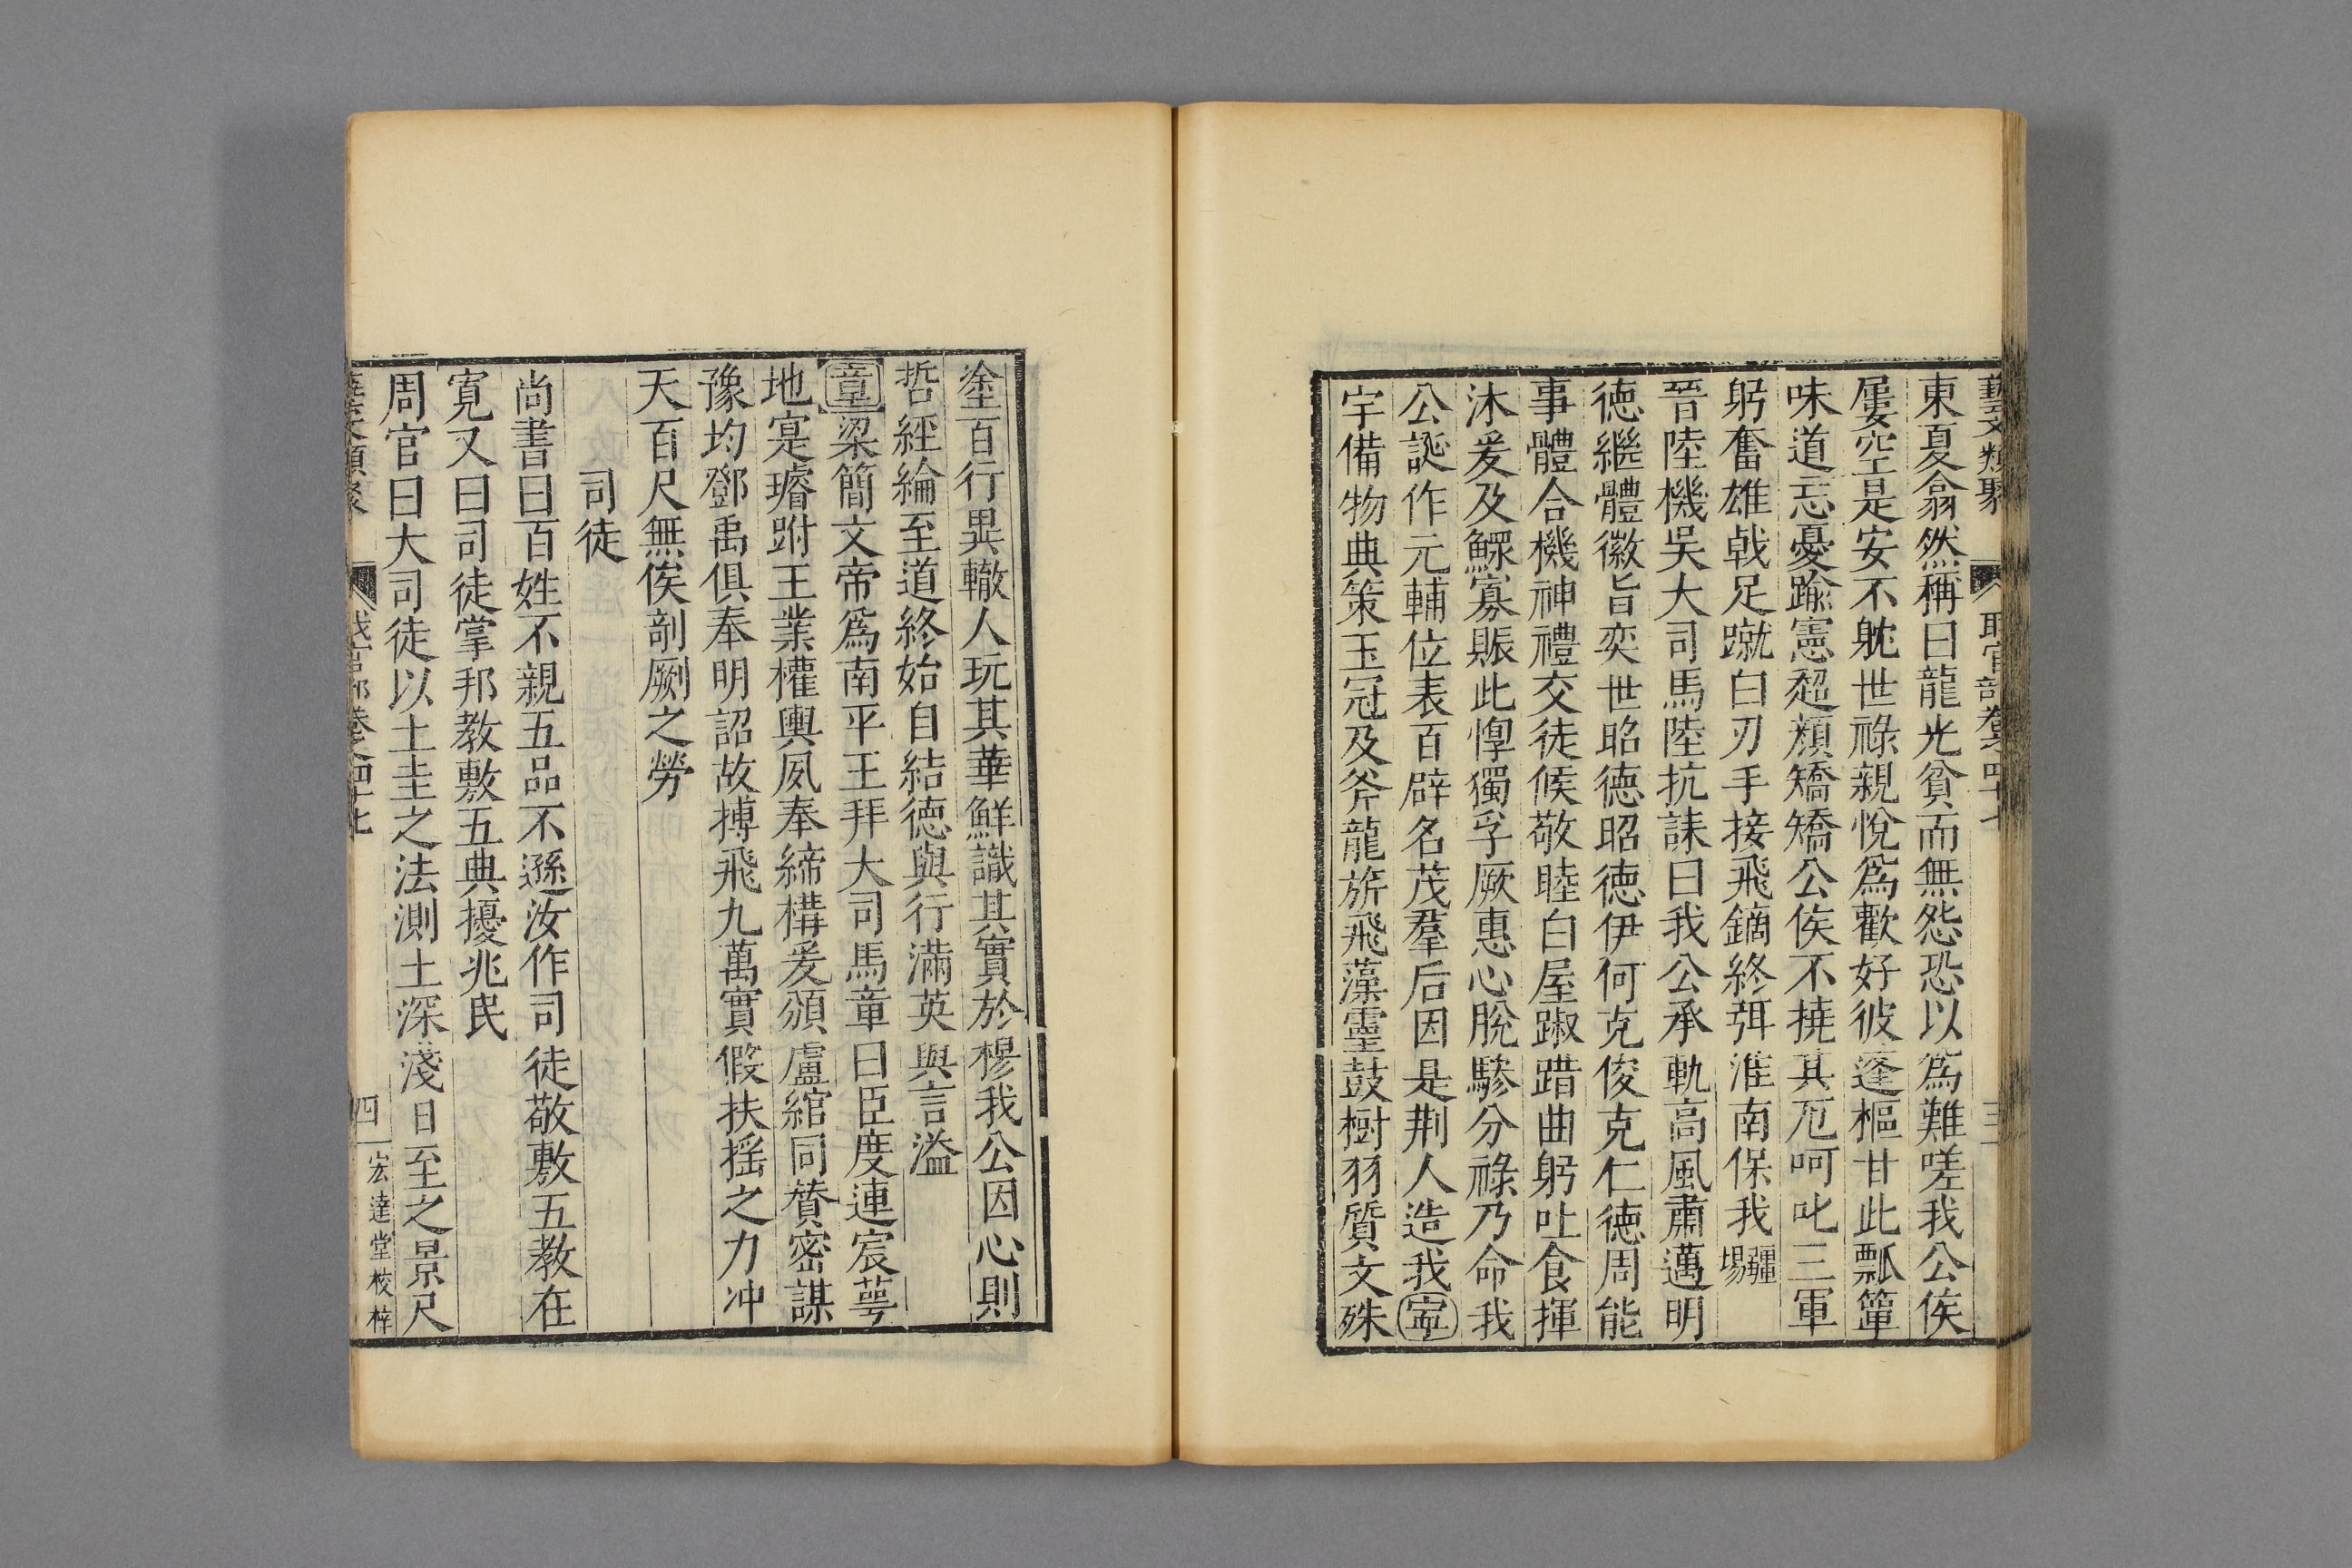 藝文類聚 職官部卷四十七 三
東夏翕然稱曰龍光貧而無怨恐以爲難嗟我公侯
屢空是安不躭世祿親悅爲歡好彼蓬樞甘此瓢簞
味道忘憂踰憲超顏矯矯公侯不撓其厄呵叱三軍
躬奮雄戟足蹴白刃手接飛鏑終弭淮南保我疆埸
晉陸機吳大司馬陸抗誄曰我公承軌高風肅邁明
德繼體徽旨奕世昭德昭德伊何克俊克仁德周能
事體合機神禮交徒候敬睦白屋踧踖曲躬吐食揮
沐爰及鰥寡賑此惸獨孚厥惠心脫驂分祿乃命我
公誕作元輔位表百辟名茂羣后因是荆人造我寧
宇備物典策玉冠及斧龍旂飛藻靈鼓樹羽質文殊
塗百行異轍人玩其華鮮識其實於穆我公因心則
哲經綸至道終始自結德與行滿英與言溢
章梁簡文帝爲南平王拜大司馬章曰臣度連宸萼
地寔璿跗王業權輿夙奉締構爰頒盧綰同贊密謀
豫均鄧禹俱奉明詔故搏飛九萬實假扶搖之力冲
天百尺無俟剞劂之勞
司徒
尚書曰百姓不親五品不遜汝作司徒敬敷五教在
寬又曰司徒掌邦教敷五典擾兆民
周官曰大司徒以土圭之法測土深淺日至之景尺
藝文類聚 職官部卷之四十七 四 宏達堂校梓